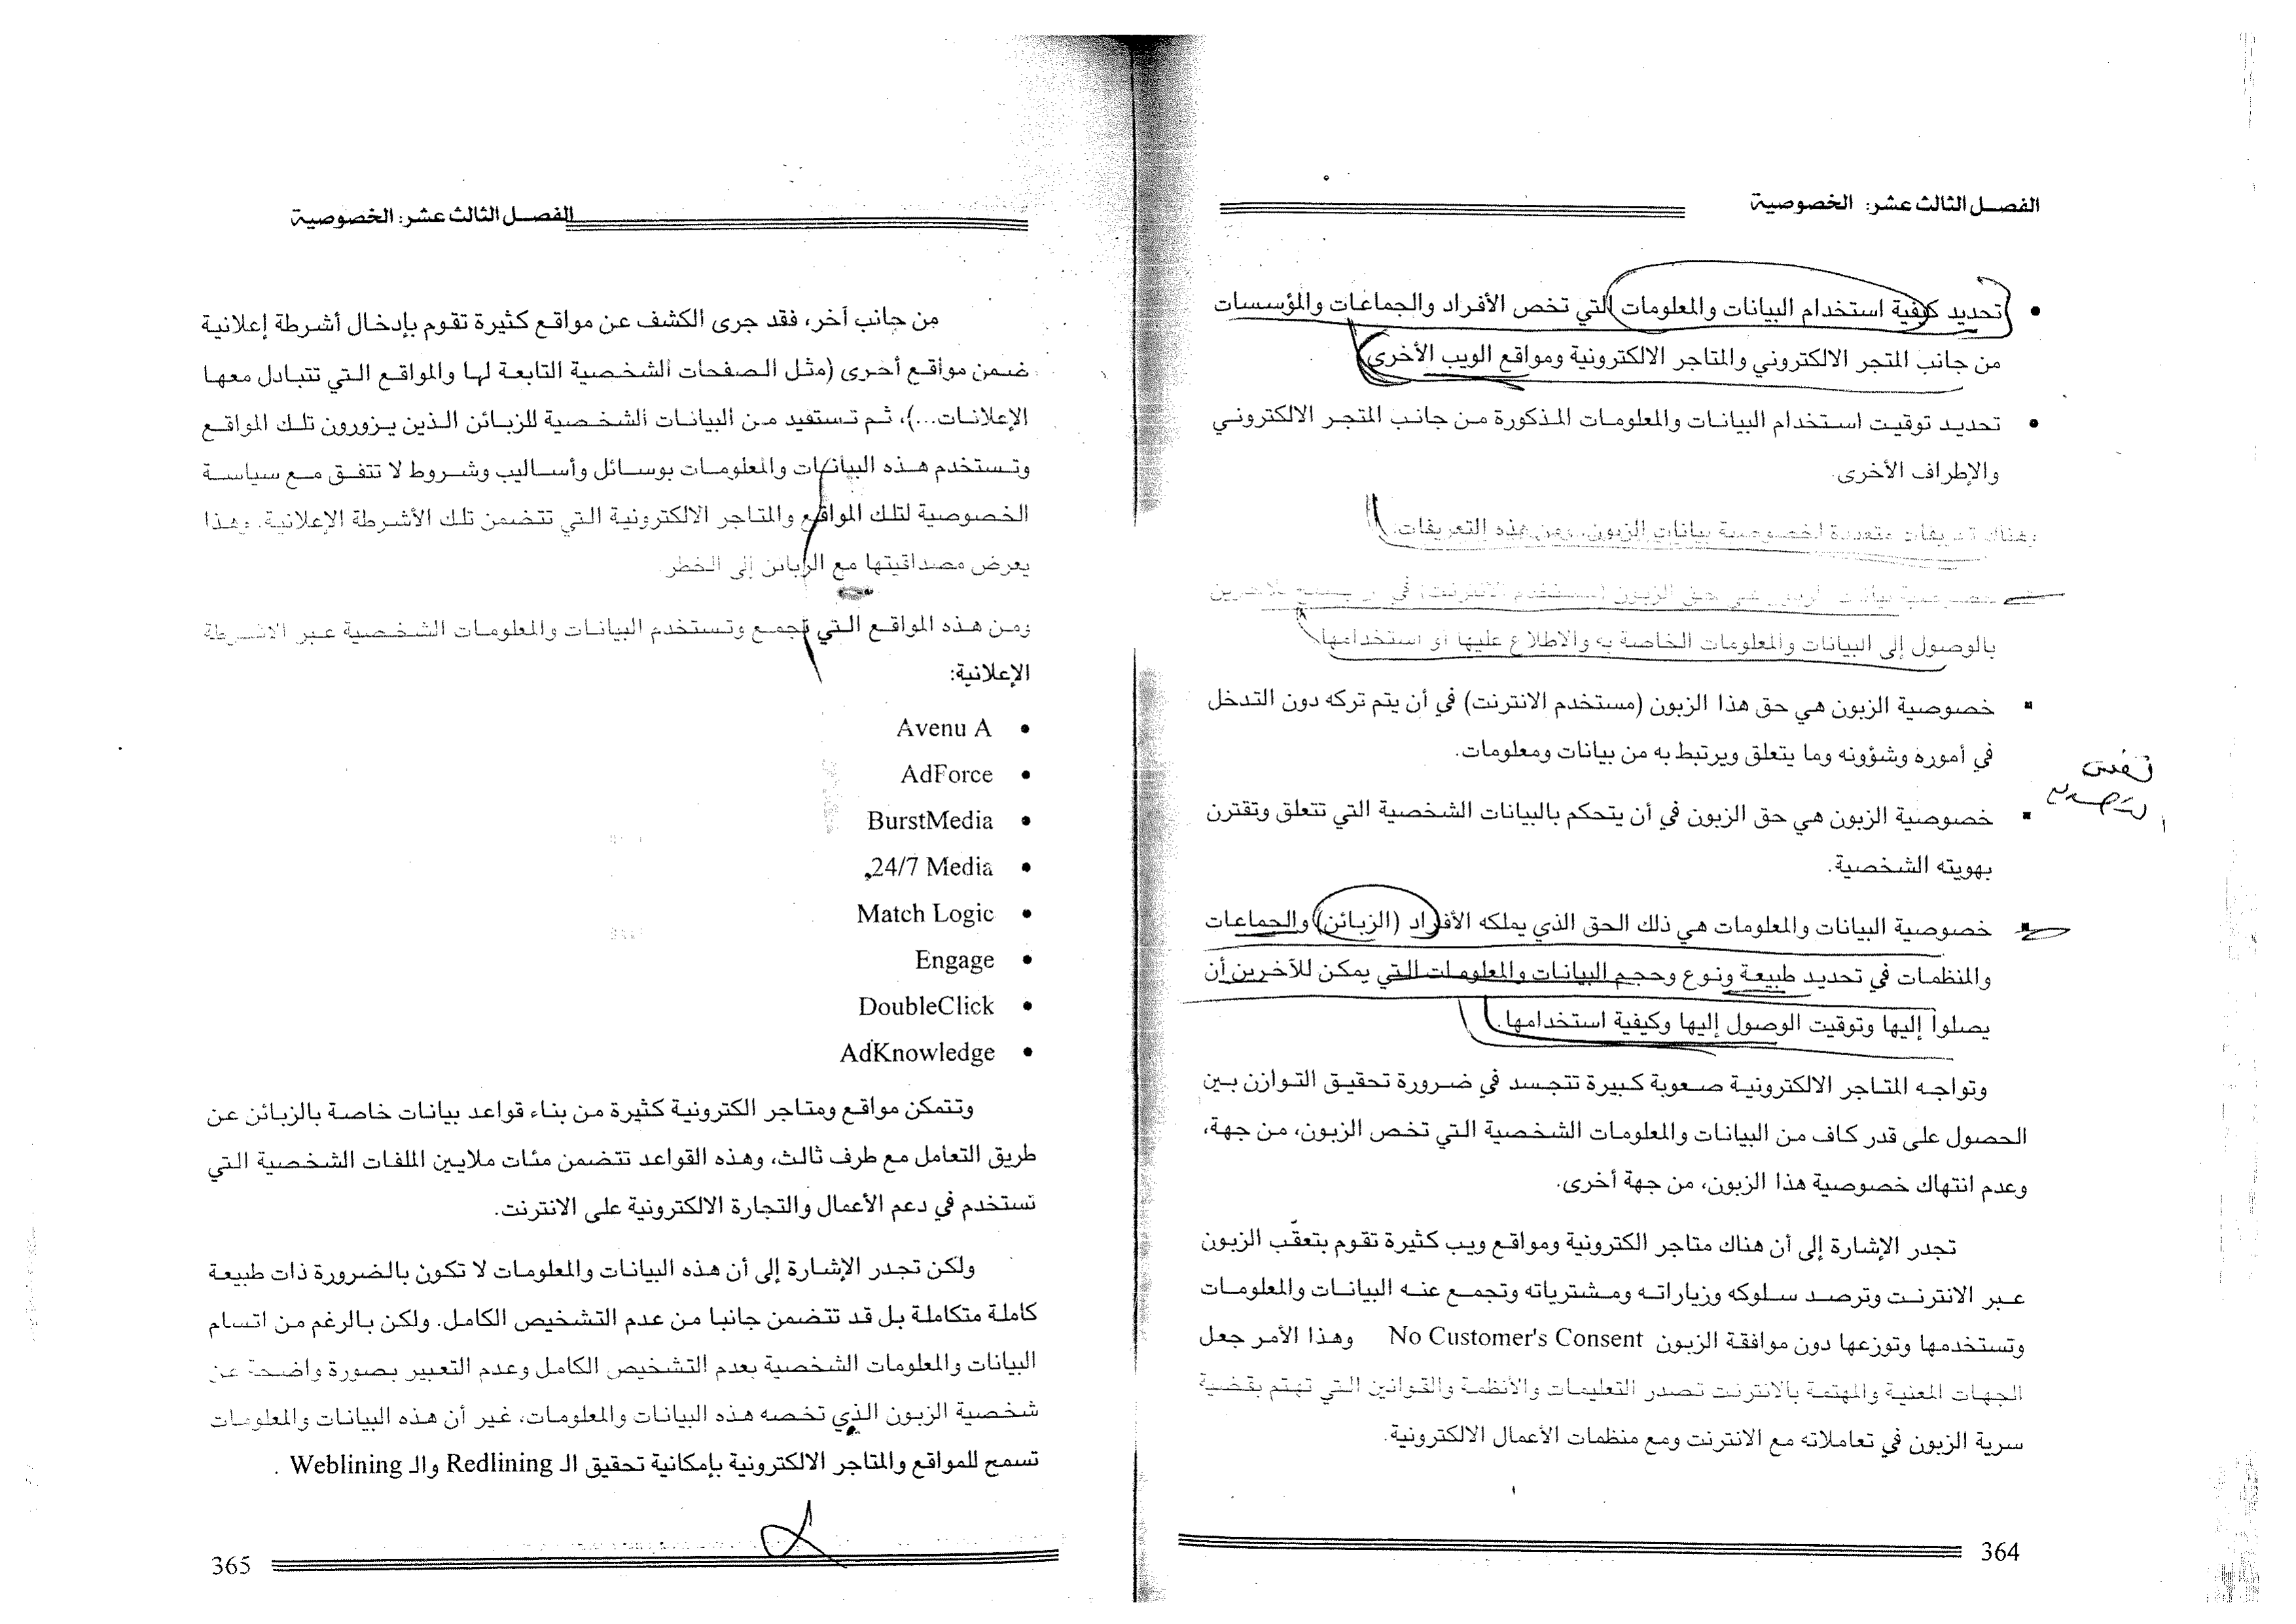 الفصل الثالث عشر: الخصوصية
• تحديد كيفية استخدام البيانات والمعلومات التي تخص الأفراد والجماعات والمؤسسات
من جانب المتجر الالكتروني والمتاجر الالكترونية ومواقع الويب الأخرى
• تحديد توقيت استخدام البيانات والمعلومات المذكورة من جانب المتجر الالكتروني
والإطراف الأخرى.
وهناك تعريفات متعددة لخصوصية بيانات الزبون، ومن هذه التعريفات:
خصوصية بيانات الزبون هي حق الزبون (مستخدم الانترنت) في أن يسمح للآخرين
بالوصول إلى البيانات والمعلومات الخاصة به والاطلاع عليها أو استخدامها
▪ خصوصية الزبون هي حق هذا الزبون (مستخدم الانترنت) في أن يتم تركه دون التدخل
في أموره وشؤونه وما يتعلق ويرتبط به من بيانات ومعلومات.
▪ خصوصية الزبون هي حق الزبون في أن يتحكم بالبيانات الشخصية التي تتعلق وتقترن
بهويته الشخصية.
▪ خصوصية البيانات والمعلومات هي ذلك الحق الذي يملكه الأفراد (الزبائن) والجماعات
والمنظمات في تحديد طبيعة ونوع وحجم البيانات والمعلومات التي يمكن للآخرين أن
يصلوا إليها وتوقيت الوصول إليها وكيفية استخدامها.
وتواجه المتاجر الالكترونية صعوبة كبيرة تتجسد في ضرورة تحقيق التوازن بين
الحصول على قدر كاف من البيانات والمعلومات الشخصية التي تخص الزبون، من جهة،
وعدم انتهاك خصوصية هذا الزبون، من جهة أخرى.
تجدر الإشارة إلى أن هناك متاجر الكترونية ومواقع ويب كثيرة تقوم بتعقّب الزبون
عبر الانترنت وترصد سلوكه وزياراته ومشترياته وتجمع عنه البيانات والمعلومات
وتستخدمها وتوزعها دون موافقة الزبون No Customer's Consent وهذا الأمر جعل
الجهات المعنية والمهتمة بالانترنت تصدر التعليمات والأنظمة والقوانين التي تهتم بقضية
سرية الزبون في تعاملاته مع الانترنت ومع منظمات الأعمال الالكترونية.
364
الفصل الثالث عشر: الخصوصية
من جانب آخر، فقد جرى الكشف عن مواقع كثيرة تقوم بإدخال أشرطة إعلانية
ضمن مواقع أخرى (مثل الصفحات الشخصية التابعة لها والمواقع التي تتبادل معها
الإعلانات...)، ثم تستفيد من البيانات الشخصية للزبائن الذين يزورون تلك المواقع
وتستخدم هذه البيانات والمعلومات بوسائل وأساليب وشروط لا تتفق مع سياسة
الخصوصية لتلك المواقع والمتاجر الالكترونية التي تتضمن تلك الأشرطة الإعلانية. وهذا
يعرض مصداقيتها مع الزبائن إلى الخطر.
ومن هذه المواقع التي تجمع وتستخدم البيانات والمعلومات الشخصية عبر الأشرطة
الإعلانية:
• Avenu A
• AdForce
• BurstMedia
• 24/7 Media
• Match Logic
• Engage
• DoubleClick
• AdKnowledge
وتتمكن مواقع ومتاجر الكترونية كثيرة من بناء قواعد بيانات خاصة بالزبائن عن
طريق التعامل مع طرف ثالث، وهذه القواعد تتضمن مئات ملايين الملفات الشخصية التي
تستخدم في دعم الأعمال والتجارة الالكترونية على الانترنت.
ولكن تجدر الإشارة إلى أن هذه البيانات والمعلومات لا تكون بالضرورة ذات طبيعة
كاملة متكاملة بل قد تتضمن جانبا من عدم التشخيص الكامل. ولكن بالرغم من اتسام
البيانات والمعلومات الشخصية بعدم التشخيص الكامل وعدم التعبير بصورة واضحة عن
شخصية الزبون الذي تخصه هذه البيانات والمعلومات، غير أن هذه البيانات والمعلومات
تسمح للمواقع والمتاجر الالكترونية بإمكانية تحقيق الـ Redlining والـ Weblining .
365